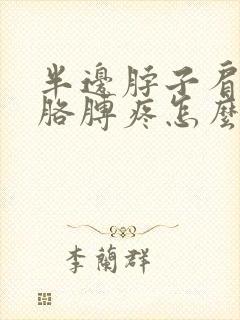 半邊脖子肩
胳膊疼怎麼
李蘭群